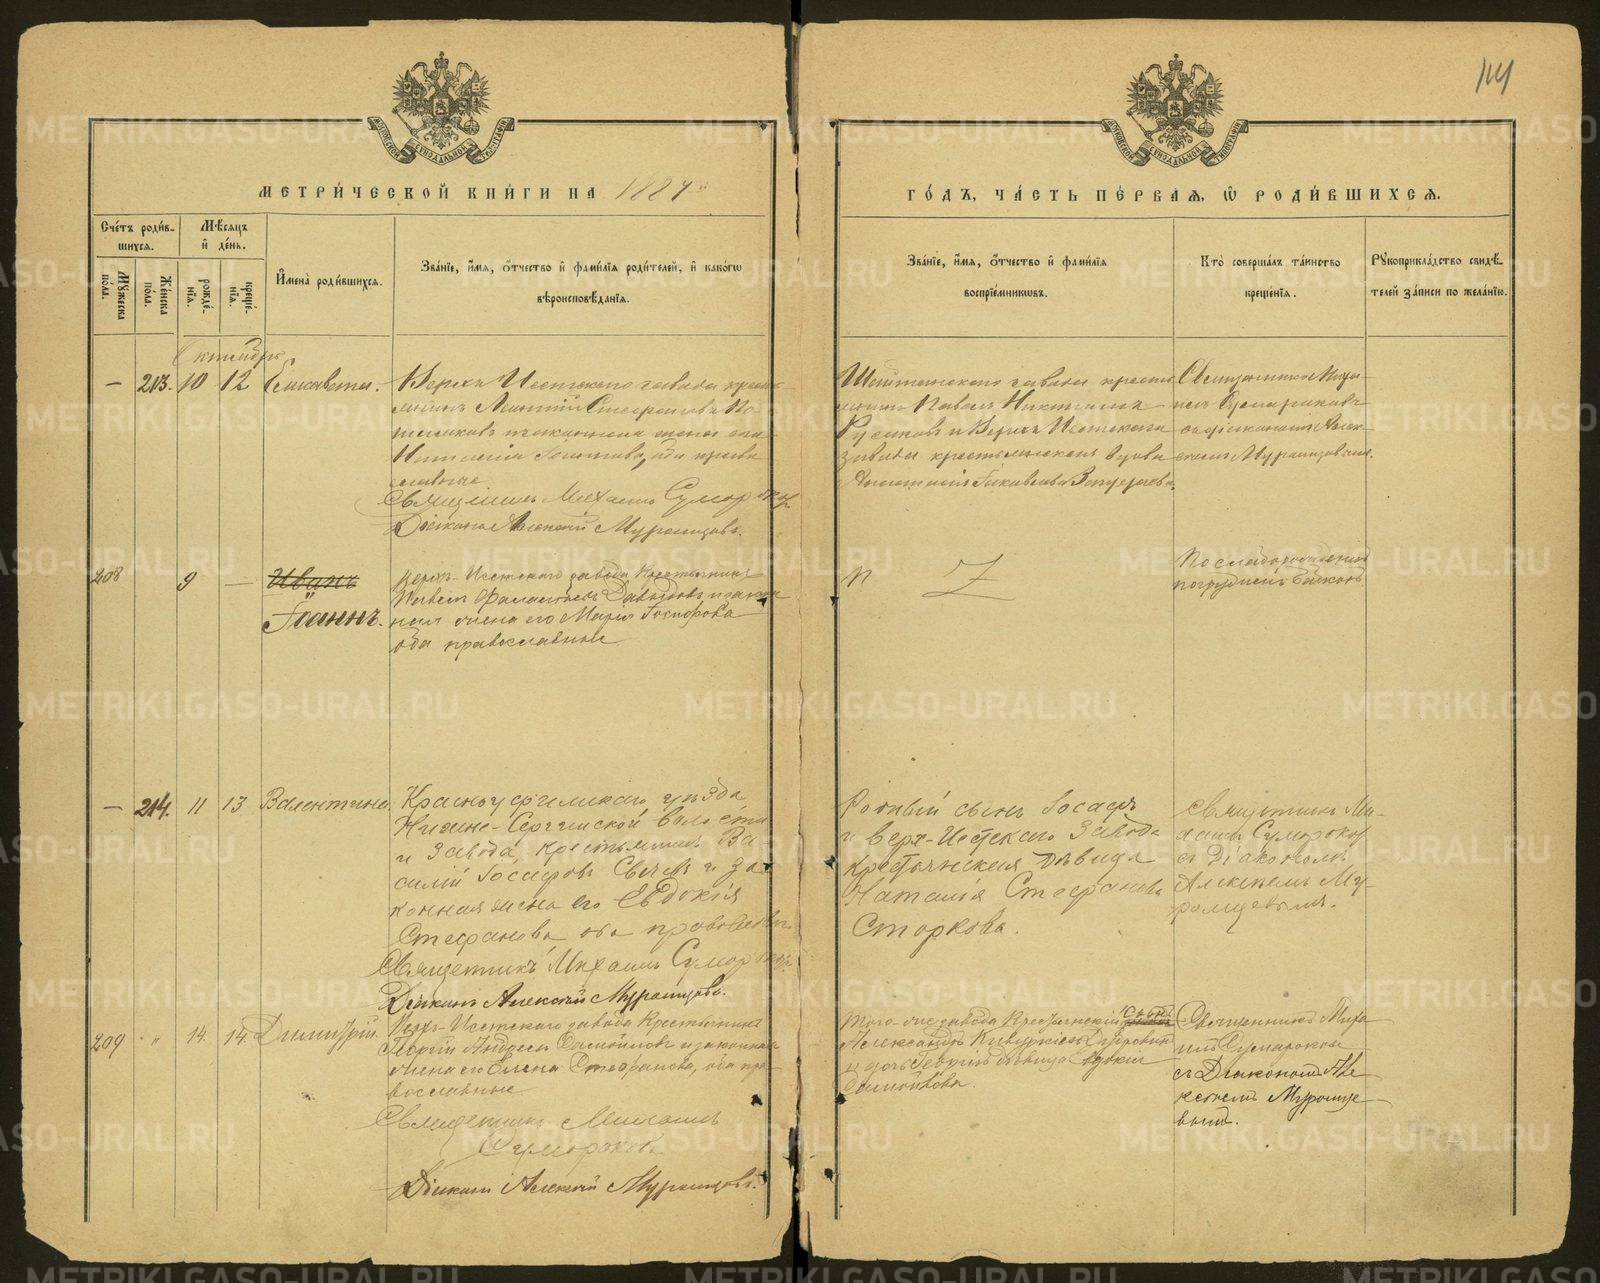 114
МЕТРИ́ЧЕСКОЙ КНИ́ГИ НА 1887
ГО́ДЪ, ЧА́СТЬ ПЕ́РВАЯ, Ѿ РОДИ́ВШИХСЯ.
Сче́тъ роди́в-
шихся.
Му́жеска по́ла.
Же́нска по́ла.
Мѣ́сяцъ и де́нь.
рожде́-
нія.
креще́-
нія.
И҆мена̀ роди́вшихся.
Зва́ніе, и҆́мя, ѻ҆́тчество и҆ фами́лія роди́телей, и҆ како́гѡ
вѣроисповѣ́данія.
Зва́ніе, и҆́мя, ѻ҆́тчество и҆ фами́лія
воспріе́мникѡвъ.
Кто̀ соверша́лъ та́инство
креще́нія.
Рꙋкоприкла́дство свидѣ́-
телей за́писи по жела́нію.
Октябрь
— 213. 10 12 Елисавета.
Верхъ Исетскаго завода крестья-
нинъ Леонтій Стефановъ
законная жена его
оба право
славные
Священникъ Михаилъ Суморoков
Діаконъ Алексій Муромцовъ.
Шайтанскаго завода крестья
нинъ Павелъ Никитинъ
Русаковъ и Верхъ Исетскаго
завода крестьянская вдова
Священникъ Миха-
илъ Сумароковъ
съ діакономъ Алек-
сіемъ Муромцовымъ.
208 9 — Иванъ
Іоаннъ.
Верхъ-Исетскаго завода Крестьянинъ
Давыдовъ и закон
ная жена его Марія Іосифова
оба православные
По слабо рожденію
погруженъ бабкою
— 214. 11 13 Валентина
Красноуфимскаго уѣзда
Нижне-Сергинской волости
и Завода, крестьянинъ Ва-
силій Іосафовъ и за
конная жена его Евдокія
Стефанова оба православн.
Священникъ Михаилъ Суморoков
Діаконъ Алексій Муромцовъ.
Родный сынъ Іосафъ
и Верх-Исетскаго Завода
Крестьянская дѣвица
Наталія Стефанова
Сторкова.
Священникъ Ми-
хаилъ Суморокov
съ Діакономъ
Алексѣемъ Му-
ромцевымъ.
209 " 14. 14. Димитрій.
Верхъ-Исетскаго завода Крестьянинъ
Георгій Андреевъ Самойловъ и законная
жена его Елена Стефанова, оба пра
вославные
Священникъ Михаилъ
Сумороковъ
Діаконъ Алексій Муромцовъ.
Того-же завода Крестьянскій сынъ
Александръ
и дочь Георгія дѣвица Евдокія
Самойлова.
Священникъ Миха
илъ Сумароков
съ Діакономъ Але
ксіемъ Муромце
вымъ.
METRIKI.GASO-URAL.RU